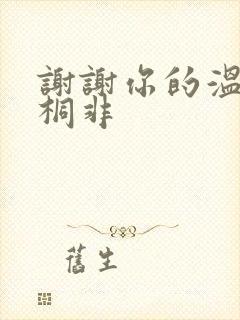 謝謝你的溫
桐非
舊生